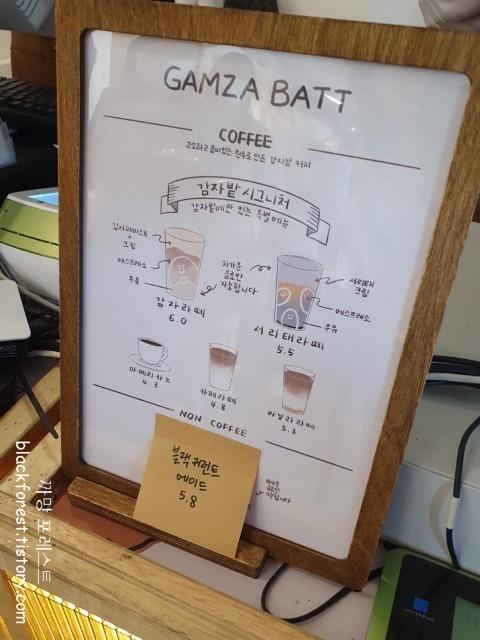 GAMZA BATT
COFFEE
고소하고 풍미있는 원두로 만든 감자밭 커피
감자밭 시그니처
감자밭에만 있는 특별메뉴
감자페이스트
+
크림
에스프레소
우유
차가운
음료만
가능합니다
서리태
크림
에스프레소
우유
감자라떼
6.0
서리태라떼
5.5
아메리카노
4.3
카페라떼
4.8
바닐라라떼
5.3
NON COFFEE
블랙커런트
에이드
5.8
차가운
음료만
가능합니다
까망 포레스트
blackforest.tistory.com